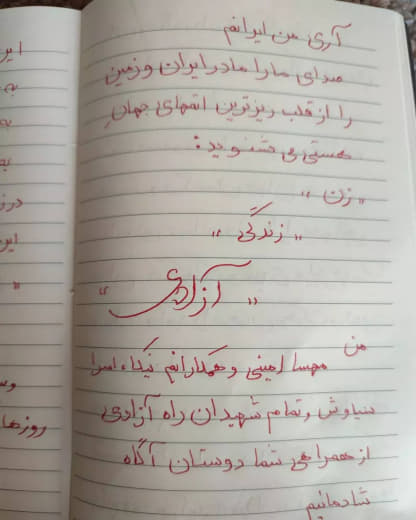 آری من ایرانم
صدای ما را مادر ایران و زمین
را از قلب ریزترین اتمهای جهان
هستی می شنوید:
"زن"
"زندگی"
"آزادی"
من
مهسا امینی و همکارانم نیکا، اسرا
سیاوش و تمام شهیدان راه آزادی
از همراهی شما دوستان آگاه
شادمانیم
روزها